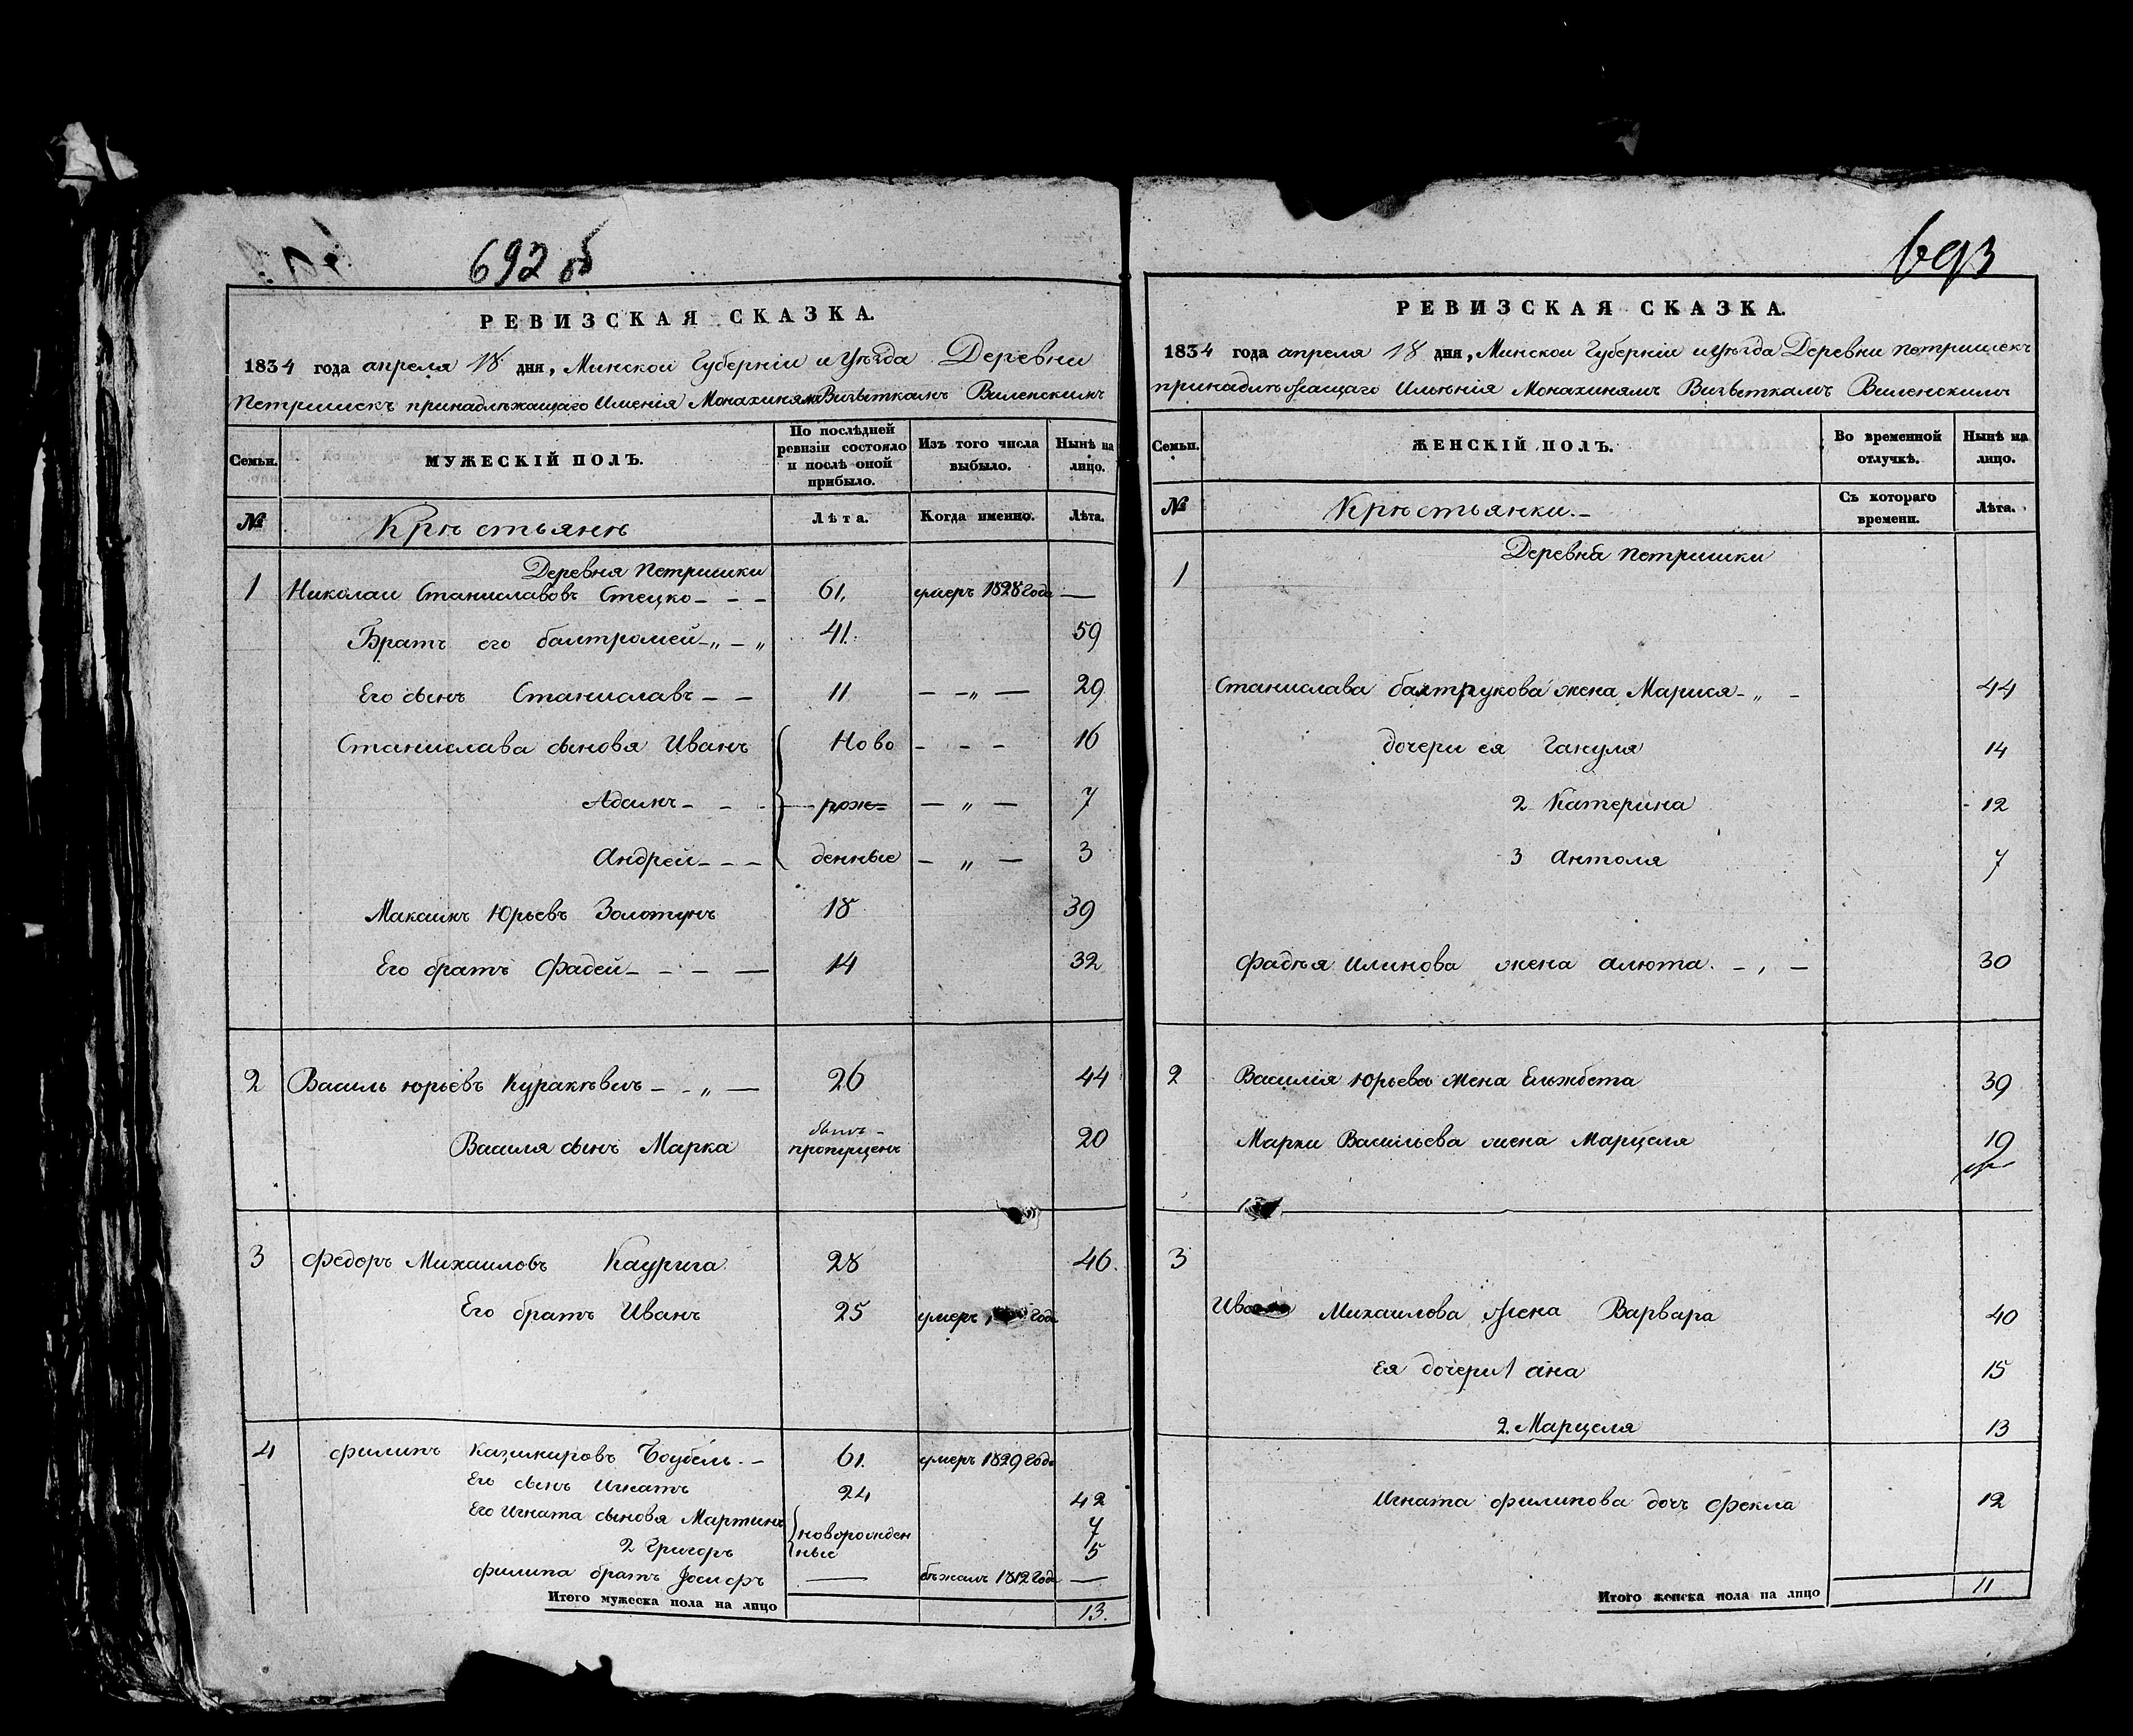 692 об
РЕВИЗСКАЯ СКАЗКА.
1834 года апреля 18 дня, Минской Губерніи и Уѣзда Деревни
Петришекъ принадлѣжащаго Имѣнія Монахинямъ Визыткамъ Виленскимъ
Семьи. МУЖЕСКІЙ ПОЛЪ. По послѣдней ревизіи состояло и послѣ оной прибыло. Изъ того числа выбыло. Нынѣ на лицо.
№ Крѣстьянѣ Лѣта. Когда именно. Лѣта.
Деревня Петришки
1 Николаи Станиславовъ Стецко - - - 61. умеръ 1828 года —
Братъ его балтромей - „ - „ 41. 59
Его сынъ Станиславъ - - 11 — - „ — 29
Станислава сыновя Иванъ Ново - - - 16
Адамъ - - - рож= — „ — 7
Андрей - - - денные — „ — 3
Максимъ Юрьевъ Золотунъ 18 39
Его братъ Фадей - - - — 14 32
2 Василь юрьевъ Куракѣвичъ - - „ — 26 44
Василя сынъ Марка былъ - пропущенъ 20
3 Федоръ Михаиловъ Каурига 28 46.
Его братъ Иванъ 25 умеръ года
4 филипъ Казимировъ Боубель. - 61. умеръ 1829 года
Его сынъ Игнатъ 24 42
Его Игната сыновя Мартинъ новорожден 7
2 Григоръ ные 5
филипа братъ Іосифъ — бѣжалъ 1812 года —
Итого мужеска пола на лицо 13.
693
РЕВИЗСКАЯ СКАЗКА.
1834 года апреля 18 дня, Минскои Губерніи и Уѣзда Деревни Петришекъ
принадлѣжащаго Имѣнія Монахинямъ Визыткамъ Виленскимъ
Семьи. ЖЕНСКІЙ ПОЛЪ. Во временной отлучкѣ. Нынѣ на лицо.
№ Крѣстьянки. - Съ котораго времени. Лѣта.
Деревня Петришки
1
Станислава балтрукова жена Марися - „ - 44
дочери ея Гануля 14
2 Катерина 12
3 Антоля 7
Фадѣя Илинова жена алюта. - , - 30
2 Василія Юрьева жена Ельжбета 39
Марки Васильева жена Марцеля 19
3
Михаилова жена Варвара 40
Ея дочери 1 ана 15
2. Марцеля 13
Игната филипова дочъ Фекла 12
Итого женска пола на лицо 11